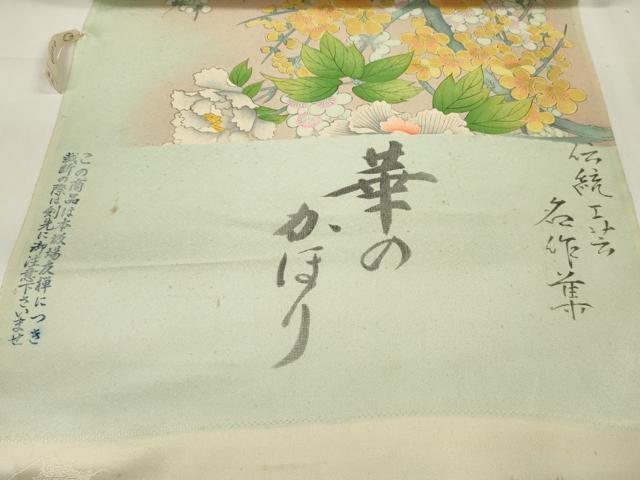 伝統工芸
名作集
華の
かほり
この商品は本波場友禅につき
裁断の際は剣先に御注意下さいませ